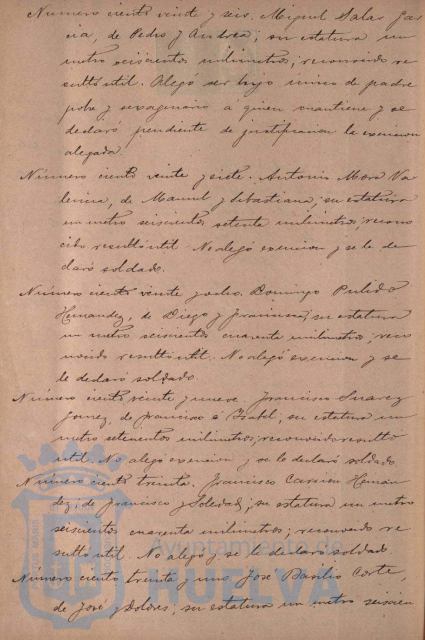 Número ciento veinte y seis. Miguel Salas Gar
cia, de Pedro y Andrea; su estatura un
metro seiscientos milimetros; reconocido re
sultó util. Alegó ser hijo único de padre
pobre y sexagenario á quien mantiene y se
declaró pendiente de justificacion la exencion
alegada.
Número ciento veinte y siete. Antonio Mora Va
lencia, de Manuel y Sebastiana; su estatura
un metro seiscientos setenta milimetros; recono
cido resultó util. No alegó exencion y se le de
claró soldado.
Número ciento veinte y ocho. Domingo Pulido
Hernandez, de Diego y Francisca; su estatura
un metro seiscientos cuarenta milimetros; reco
nocido resultó util. No alegó exencion y se
le declaró soldado.
Número ciento veinte y nueve. Francisco Suarez
Gomez, de Francisco é Isabel; su estatura un
metro setecientos milimetros; reconocido resultó
util. No alegó exencion y se le declaró soldado.
Número ciento treinta. Francisco Hernan
dez, de Francisco y Soledad; su estatura un metro
seiscientos cuarenta milimetros; reconocido re
sultó util. No alegó y se le declaró soldado
Número ciento treinta y uno. José Basilio Corte,
de José y Dolores; su estatura un metro seiscien
Ayuntamiento de
HUELVA